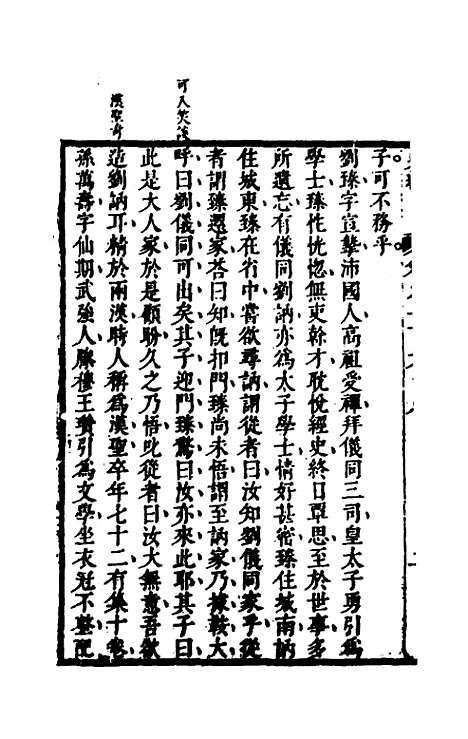 可入笑海
漢聖奇
子可不務乎
劉臻字宣摯沛國人高祖受禪拜儀同三司皇太子勇引爲
學士臻性恍惚無吏幹才耽悅經史終日覃思至於世事多
所遺忘有儀同劉訥亦爲太子學士情好甚密臻住城南訥
住城東臻在省中嘗欲尋訥謂從者曰汝知劉儀同家乎從
者謂臻還家荅曰知旣扣門臻尚未悟謂至訥家乃據鞍大
呼曰劉儀同可出矣其子迎門臻驚曰汝亦來此耶其子曰
此是大人家於是顧盼久之乃悟叱從者曰汝大無意吾欲
造劉訥耳精於兩漢時人稱爲漢聖卒年七十二有集十卷
孫萬壽字仙期武強人滕穆王瓚引爲文學坐衣冠不整配